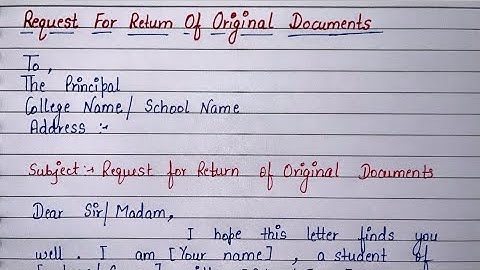 Request For Return Of Original Documents
To,
The Principal
College Name/ School Name
Address :-
Subject:- Request for Return of Original Documents
Dear Sir/Madam,
I hope this letter finds you
well. I am [Your name], a student of